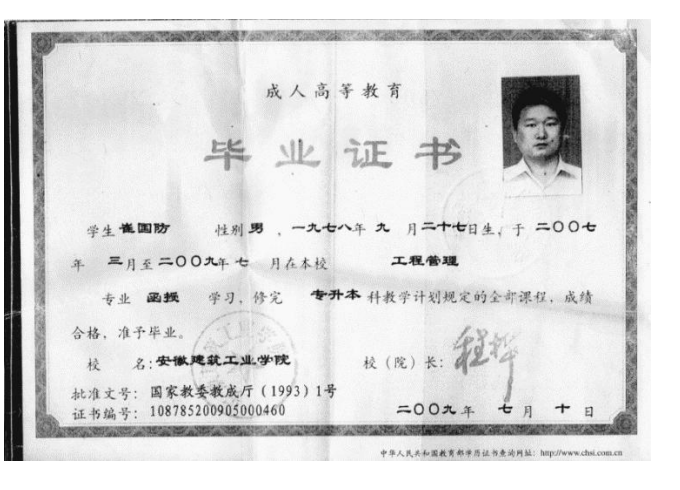 成人高等教育
毕业证书
学生 崔国防 性别 男 ，一九七八年 九 月二十七日生，于 二〇〇七
年 三月至二〇〇九年七 月在本校 工程管理
专业 函授 学习，修完 专升本 科教学计划规定的全部课程，成绩
合格，准予毕业。
校 名：安徽建筑工业学院 校（院）长：
批准文号：国家教委教成厅（1993）1号
证书编号：108785200905000460 二〇〇九年 七月 十日
中华人民共和国教育部学历证书查询网址：http://www.chsi.com.cn